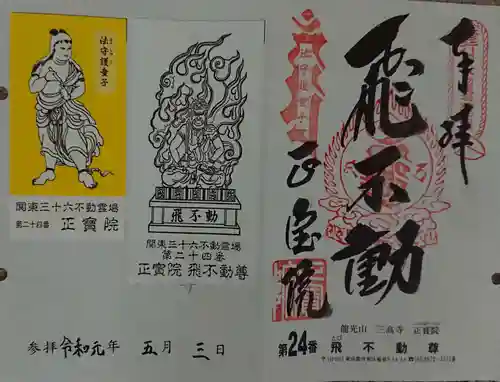 法守護童子
関東三十六不動霊場
第二十四番 正寳院
飛不動
関東三十六不動霊場
第二十四番
正寳院 飛不動尊
参拝 令和元年 五月 三日
奉拝
飛不動
正宝院
法守護童子
龍光山 三高寺 正寳院
第24番 飛不動尊